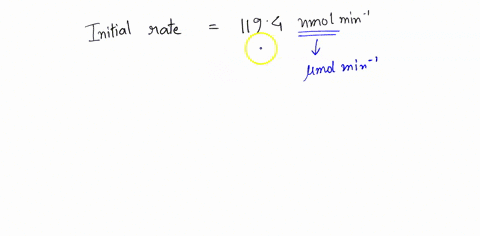 Initial rate = 119.4 nmol min⁻¹
↓
μmol min⁻¹